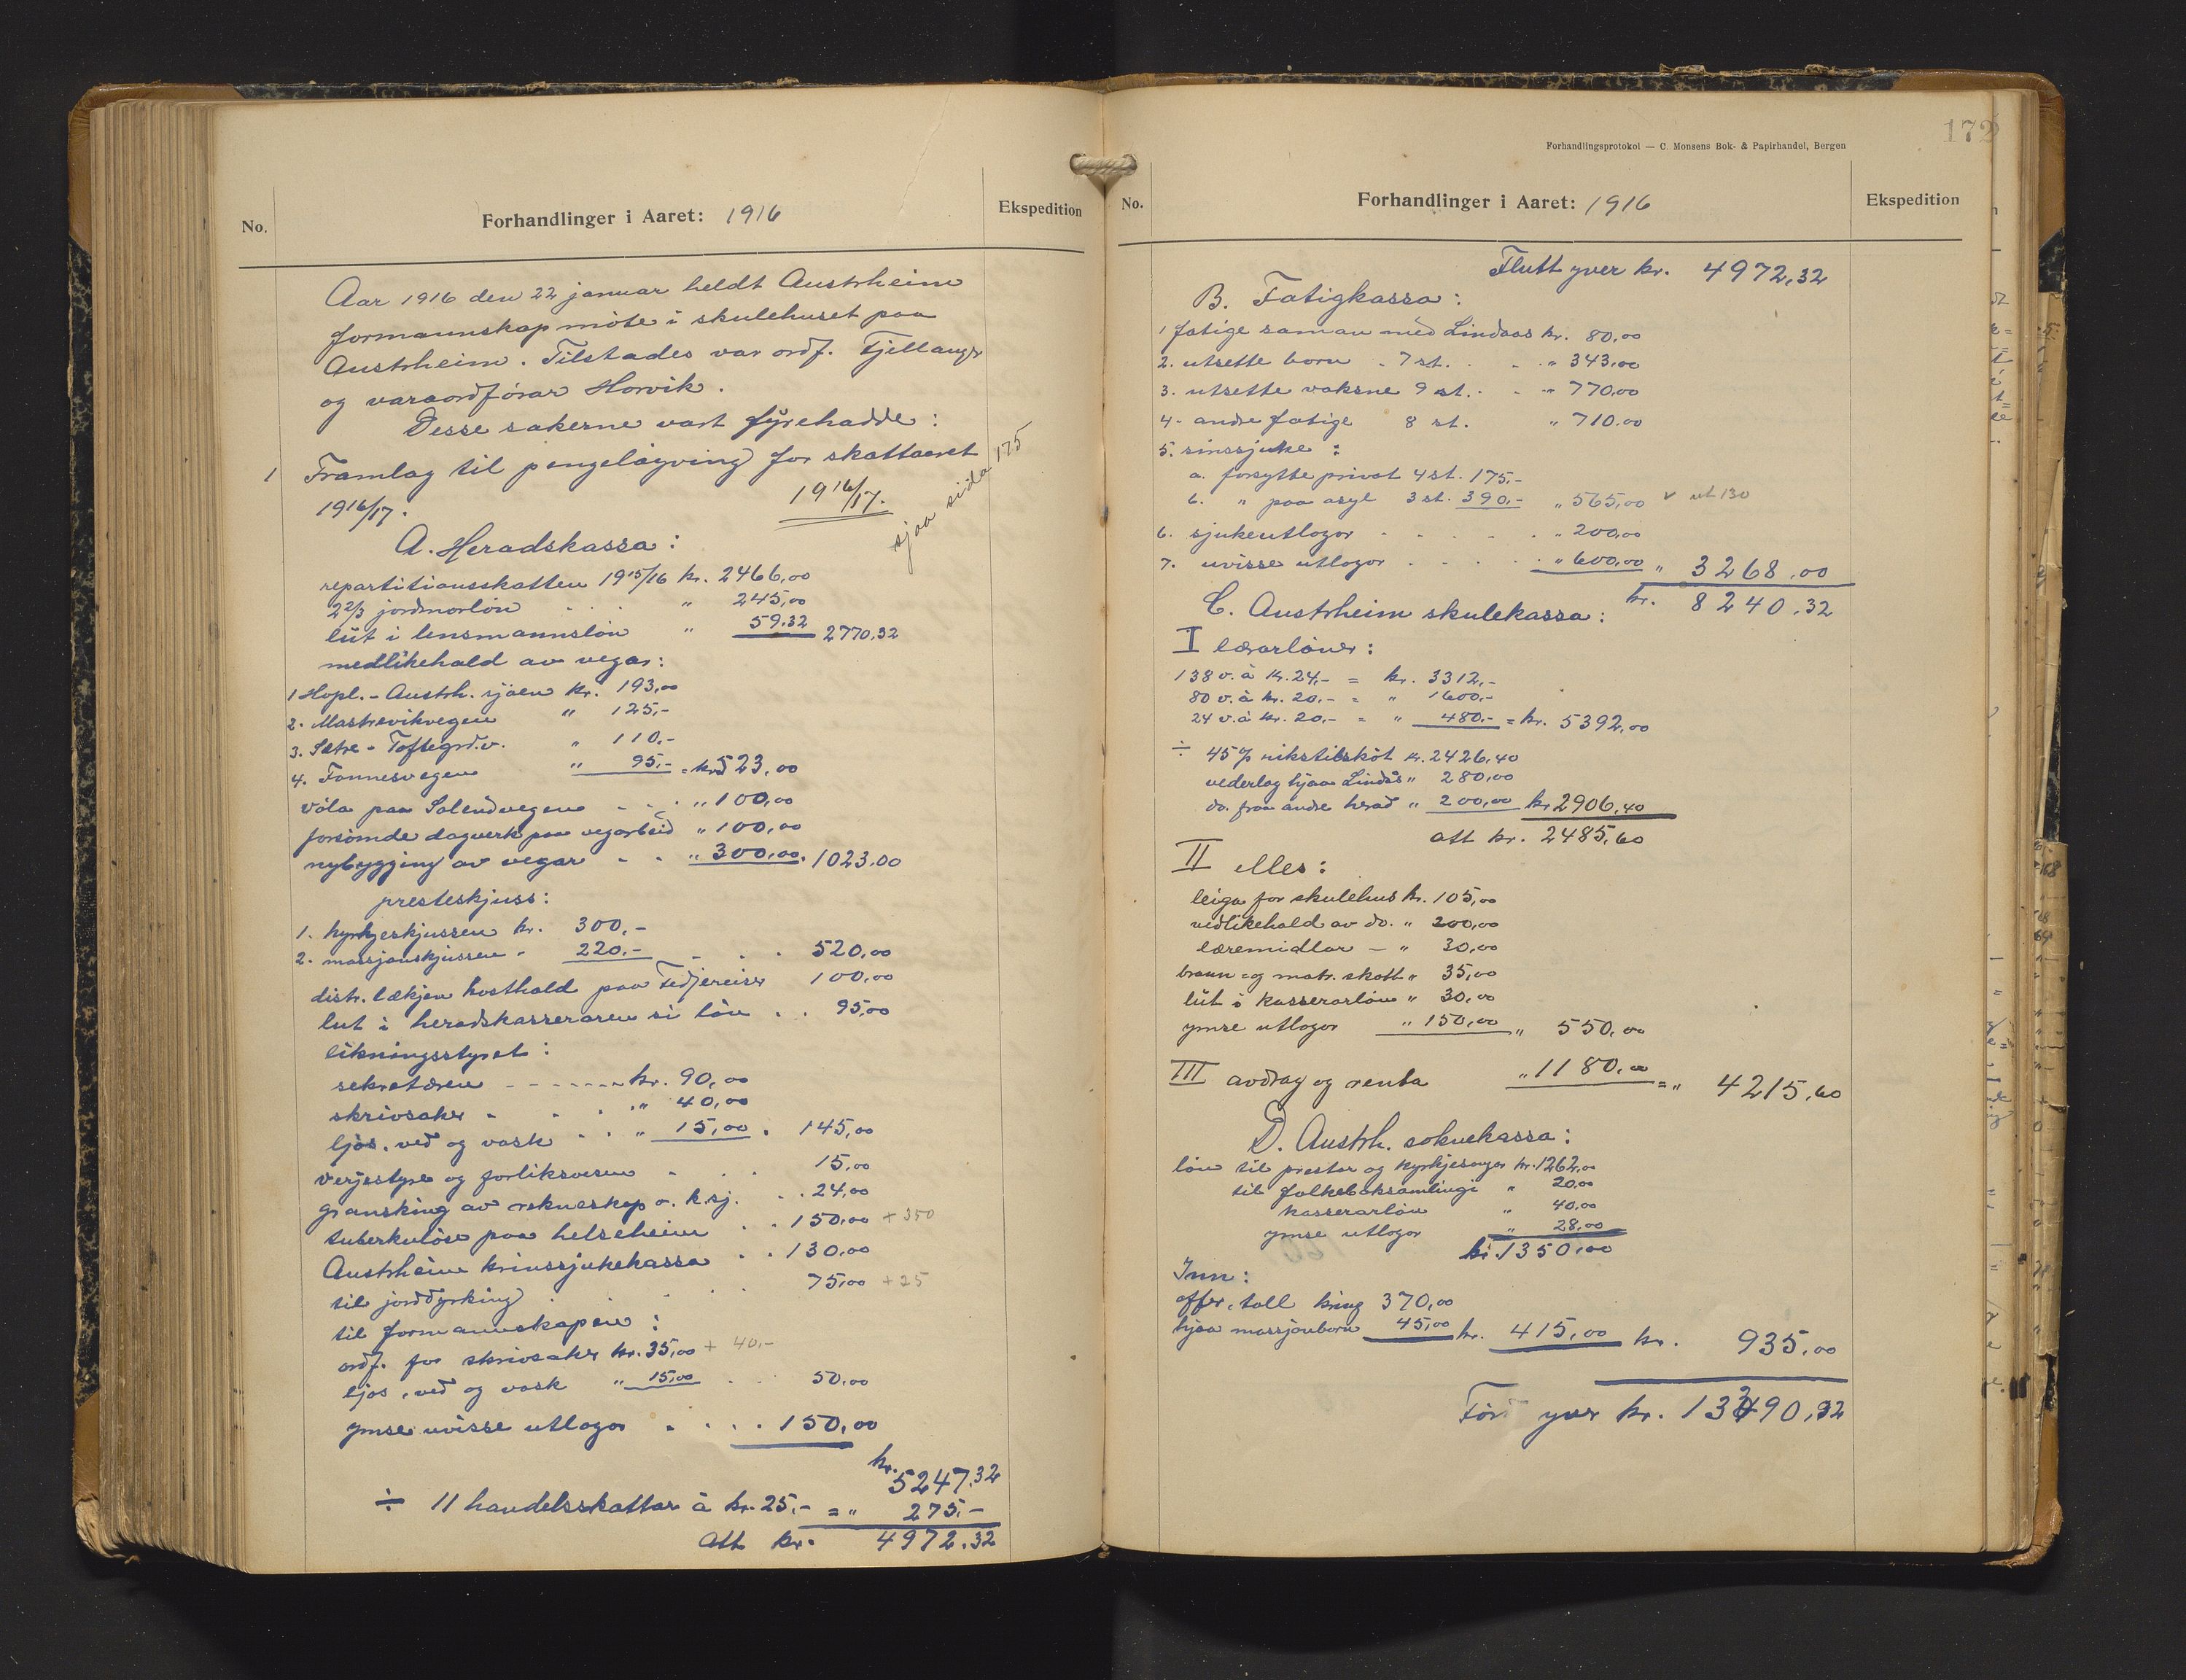 No. Forhandlinger i Aaret: 1916 Ekspedition
Aar 1916 den 22 januar heldt Austrheim
formannskap möte i skulehuset paa
Austrheim. Tilstades var ordf. Fjellanger
og varaordförar Horvik.
Desse sakerne vart fyrehadde:
1 Framlag til pengeløyving for skattaaret
1916/17. 1916/17.
sjaa sida 175
A. Heradskassa:
repartitionsskatten 1915/16 kr. 2466,00
2 2/3 jordmorlön " 245,00
lut i lensmannslön " 59.32 2770,32
medlikehald av vegar:
1 Hopl. - Austrh. sjöen kr. 193,00
2. Mastrevikvegen " 125,-
3. Sætre - Toftegrd.v. " 110,-
4. Fonnesvegen " 95,- = kr 523,00
völa paa Solendvegen - - . " 100,00
forsömde dagverk paa vegarbeid " 100,00
nybygging av vegar - - " 300,00. 1023.00
presteskjuss:
1. kyrkjeskjussen kr. 300,-
2. massjonskjussen - 220,- - . . 520,00
distr. lækjen kosthald paa Fedjereiser 100,00
lut i heradskasseraren si lön . . 95,00
likningsstyret:
sekretæren - - - - - - kr. 90,00
skrivsaker - - . . " 40,00
ljos, ved og vask . . " 15,00 . 145,00
verjestyre og forliksvesen - . . 15,00
gransking av rekneskap o. k. sj. . . 24,00
tuberkulöse paa helseheim . . 150,00 + 350
Austrheim krinssjukekassa . . 130,00
til jorddyrking . . . 75,00 + 25
til formannskapen:
ordf. for skrivsaker kr. 35,00 + 40,-
ljos, ved og vask " 15,00 . . 50,00
ymse uvisse utlogor . . . . 150,00
kr. 5247,32
÷ 11 handelsskattar à kr. 25,- = " 275,-
Att kr. 4972.32
172
Forhandlingsprotokol — C. Monsens Bok- & Papirhandel, Bergen
No. Forhandlinger i Aaret: 1916 Ekspedition
Flutt yver kr. 4972,32
B. Fatigkassa:
1 fatige saman med Lindaas kr. 80,00
2. utsette born . 7 st. . . " 343,00
3. utsette vaksne 9 st. . . " 770,00
4. andre fatige 8 st. " 710.00
5. sinssjuke:
a. forsytte privat 4 st. 175,-
b. " paa asyl 3 st. 390,- " 565,00 v ut 130
6. sjukeutlogor - . . . . " 200,00
7. uvisse utlogor . . . . " 600,00 " 3268.00
kr. 8240.32
C. Austrheim skulekassa:
I lærarlöner:
138 v. à kr. 24,- = kr. 3312,-
80 v. à kr. 20,- = " 1600,-
24 v. à kr. 20,- = " 480,- = kr. 5392,00
÷ 45 % rikstilskot kr. 2426,40
vederlag hjaa Lindås " 280,00
do. fraa andre herad " 200,00 kr 2906,40
att kr. 2485,60
II elles:
leiga for skulehus kr. 105,00
vedlikehald av do. " 200,00
læremidlar — " 30,00
brann- og matr. skatt " 35,00
lut i kasserarlön " 30,00
ymse utlogor " 150,00 " 550,00
III avdrag og renta " 1180,00 = " 4215,60
D. Austrh. soknekassa:
lön til prestar og kyrkjesongar kr. 1262,00
til folkeboksamlingi " 20,00
kasserarlön " 40,00
ymse utlogor " 28,00
kr 1350,00
Inn:
offer, toll kring 370,00
hjaa massjonborn 45,00 kr. 415,00 kr. 935,00
Före yver kr. 13390,92